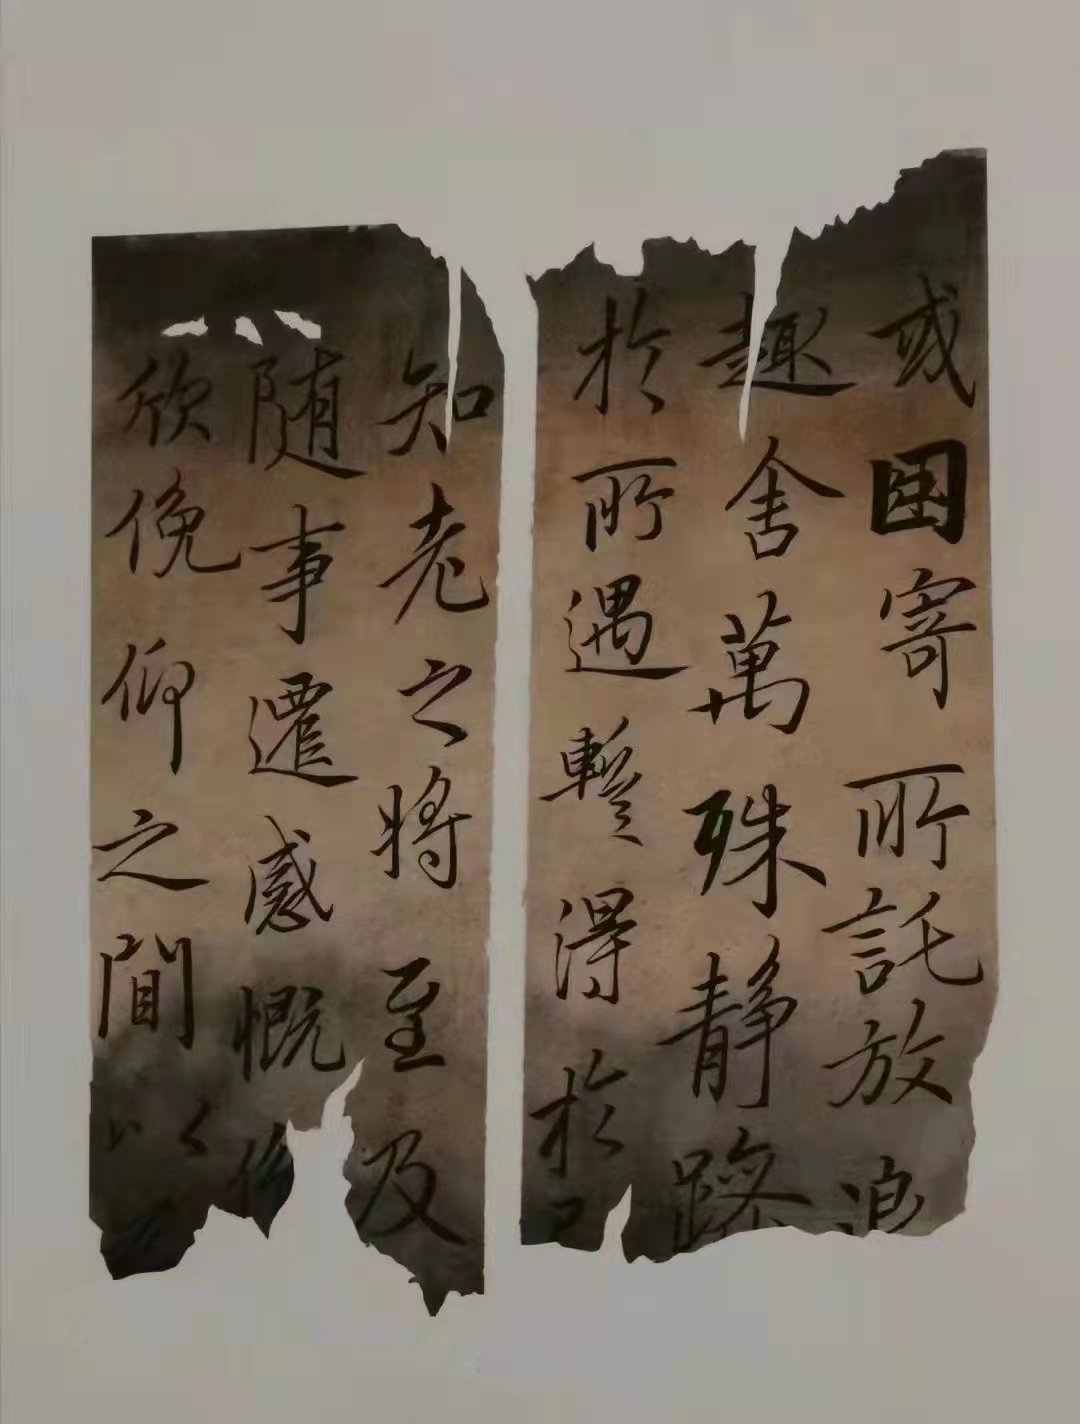 或因寄所託放浪
趣舍萬殊静躁
於所遇暫得於
知老之將至及
随事遷感慨係
欣俛仰之間以